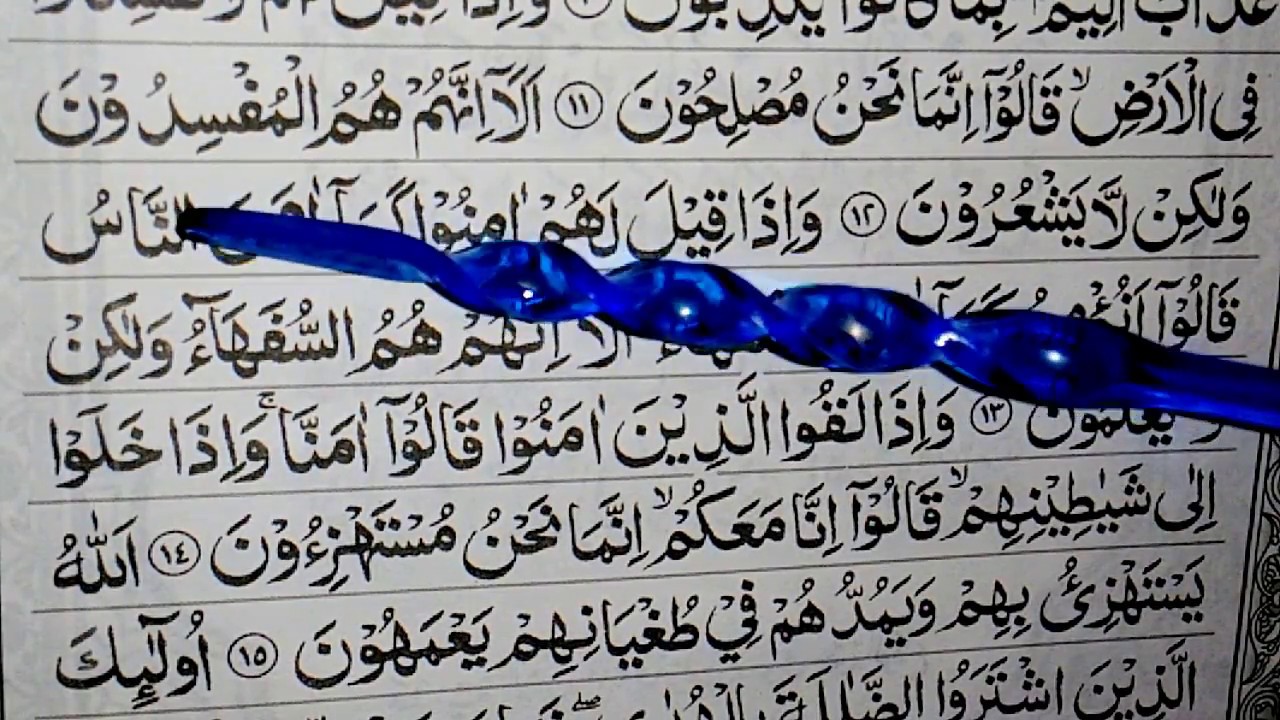 عَذَابٌ اَلِيْمٌۢ بِمَا كَانُوْا يَكْذِبُوْنَ ١٠ وَاِذَا قِيْلَ
فِى الْاَرْضِۙ قَالُوْٓا اِنَّمَا نَحْنُ مُصْلِحُوْنَ ١١ اَلَآ اِنَّهُمْ هُمُ الْمُفْسِدُوْنَ
وَلٰكِنْ لَّا يَشْعُرُوْنَ ١٢ وَاِذَا قِيْلَ لَهُمْ اٰمِنُوْا كَمَآ اٰمَنَ النَّاسُ
قَالُوْٓا اَنُؤْمِنُ كَمَآ اَلَآ اِنَّهُمْ هُمُ السُّفَهَاۤءُ وَلٰكِنْ
لَّا يَعْلَمُوْنَ ١٣ وَاِذَا لَقُوا الَّذِيْنَ اٰمَنُوْا قَالُوْٓا اٰمَنَّاۚ وَاِذَا خَلَوْا
اِلٰى شَيٰطِيْنِهِمْۙ قَالُوْٓا اِنَّا مَعَكُمْۙ اِنَّمَا نَحْنُ مُسْتَهْزِءُوْنَ ١٤ اَللّٰهُ
يَسْتَهْزِئُ بِهِمْ وَيَمُدُّهُمْ فِيْ طُغْيَانِهِمْ يَعْمَهُوْنَ ١٥ اُولٰۤىِٕكَ
الَّذِيْنَ اشْتَرَوُا الضَّلٰلَةَ بِالْهُدٰى